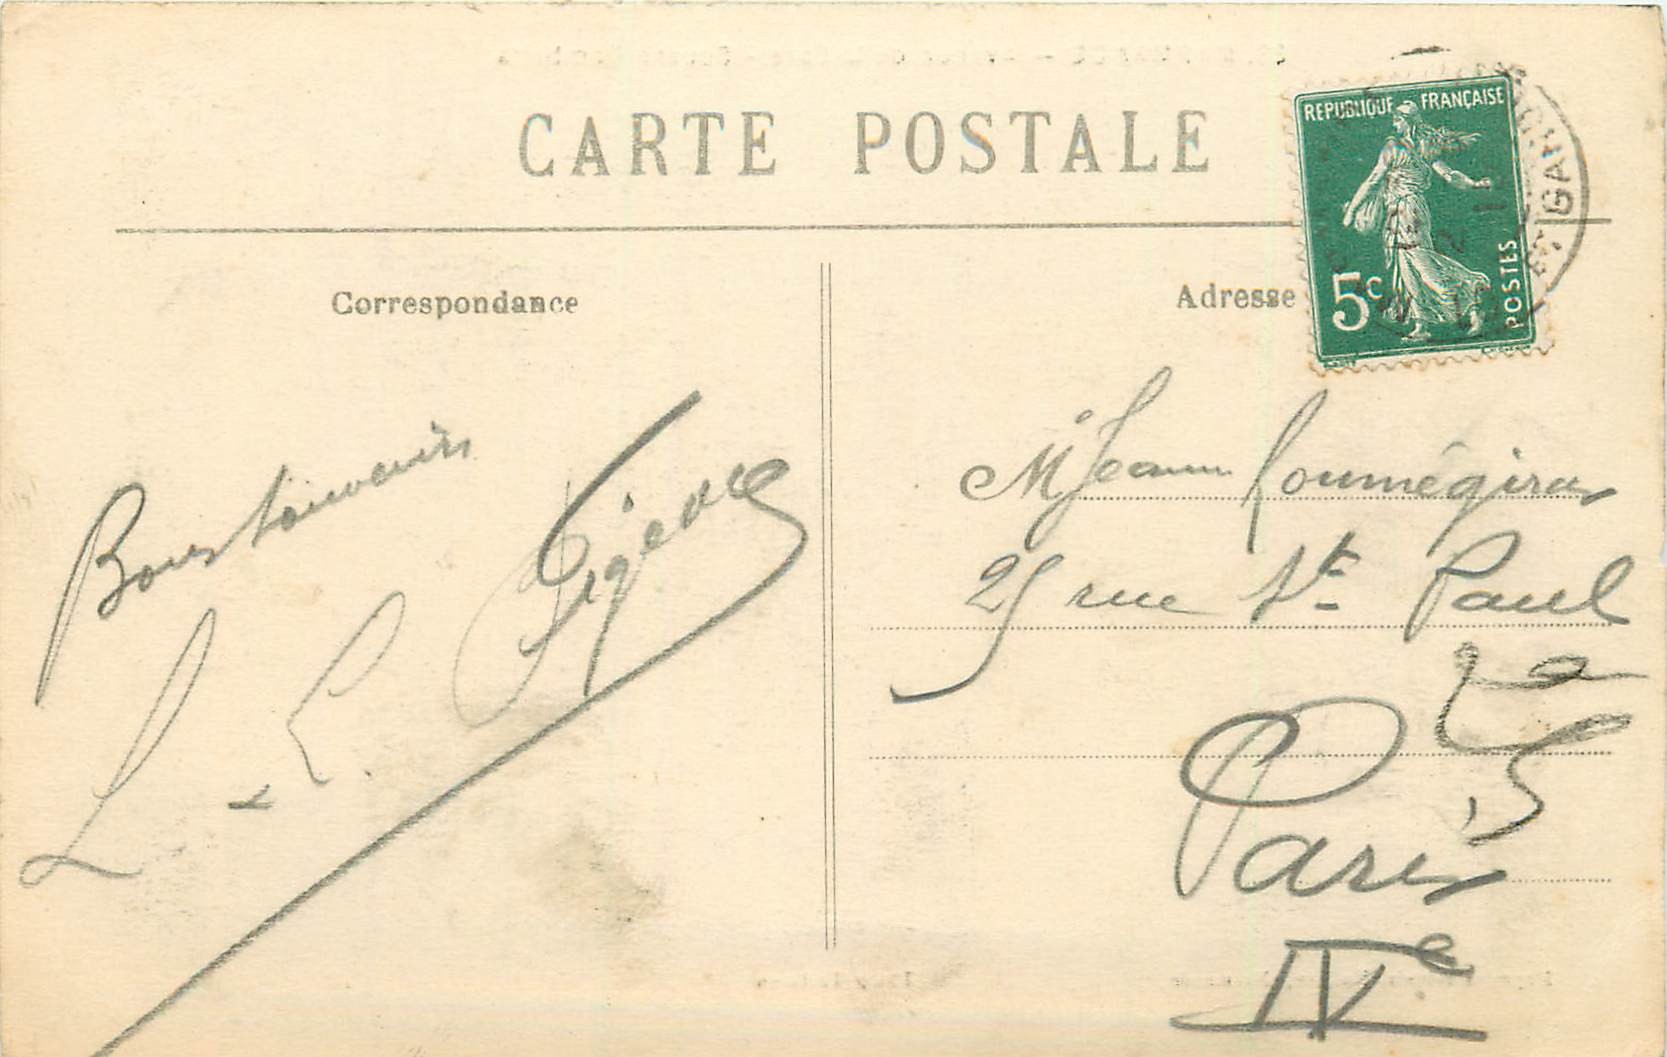 CARTE POSTALE
Correspondance
Bons souvenirs
L. L. Pigeore
Adresse
REPUBLIQUE FRANÇAISE
5c
POSTES
Mr Jean Loumégiras
25 rue St Paul
Paris
IVe